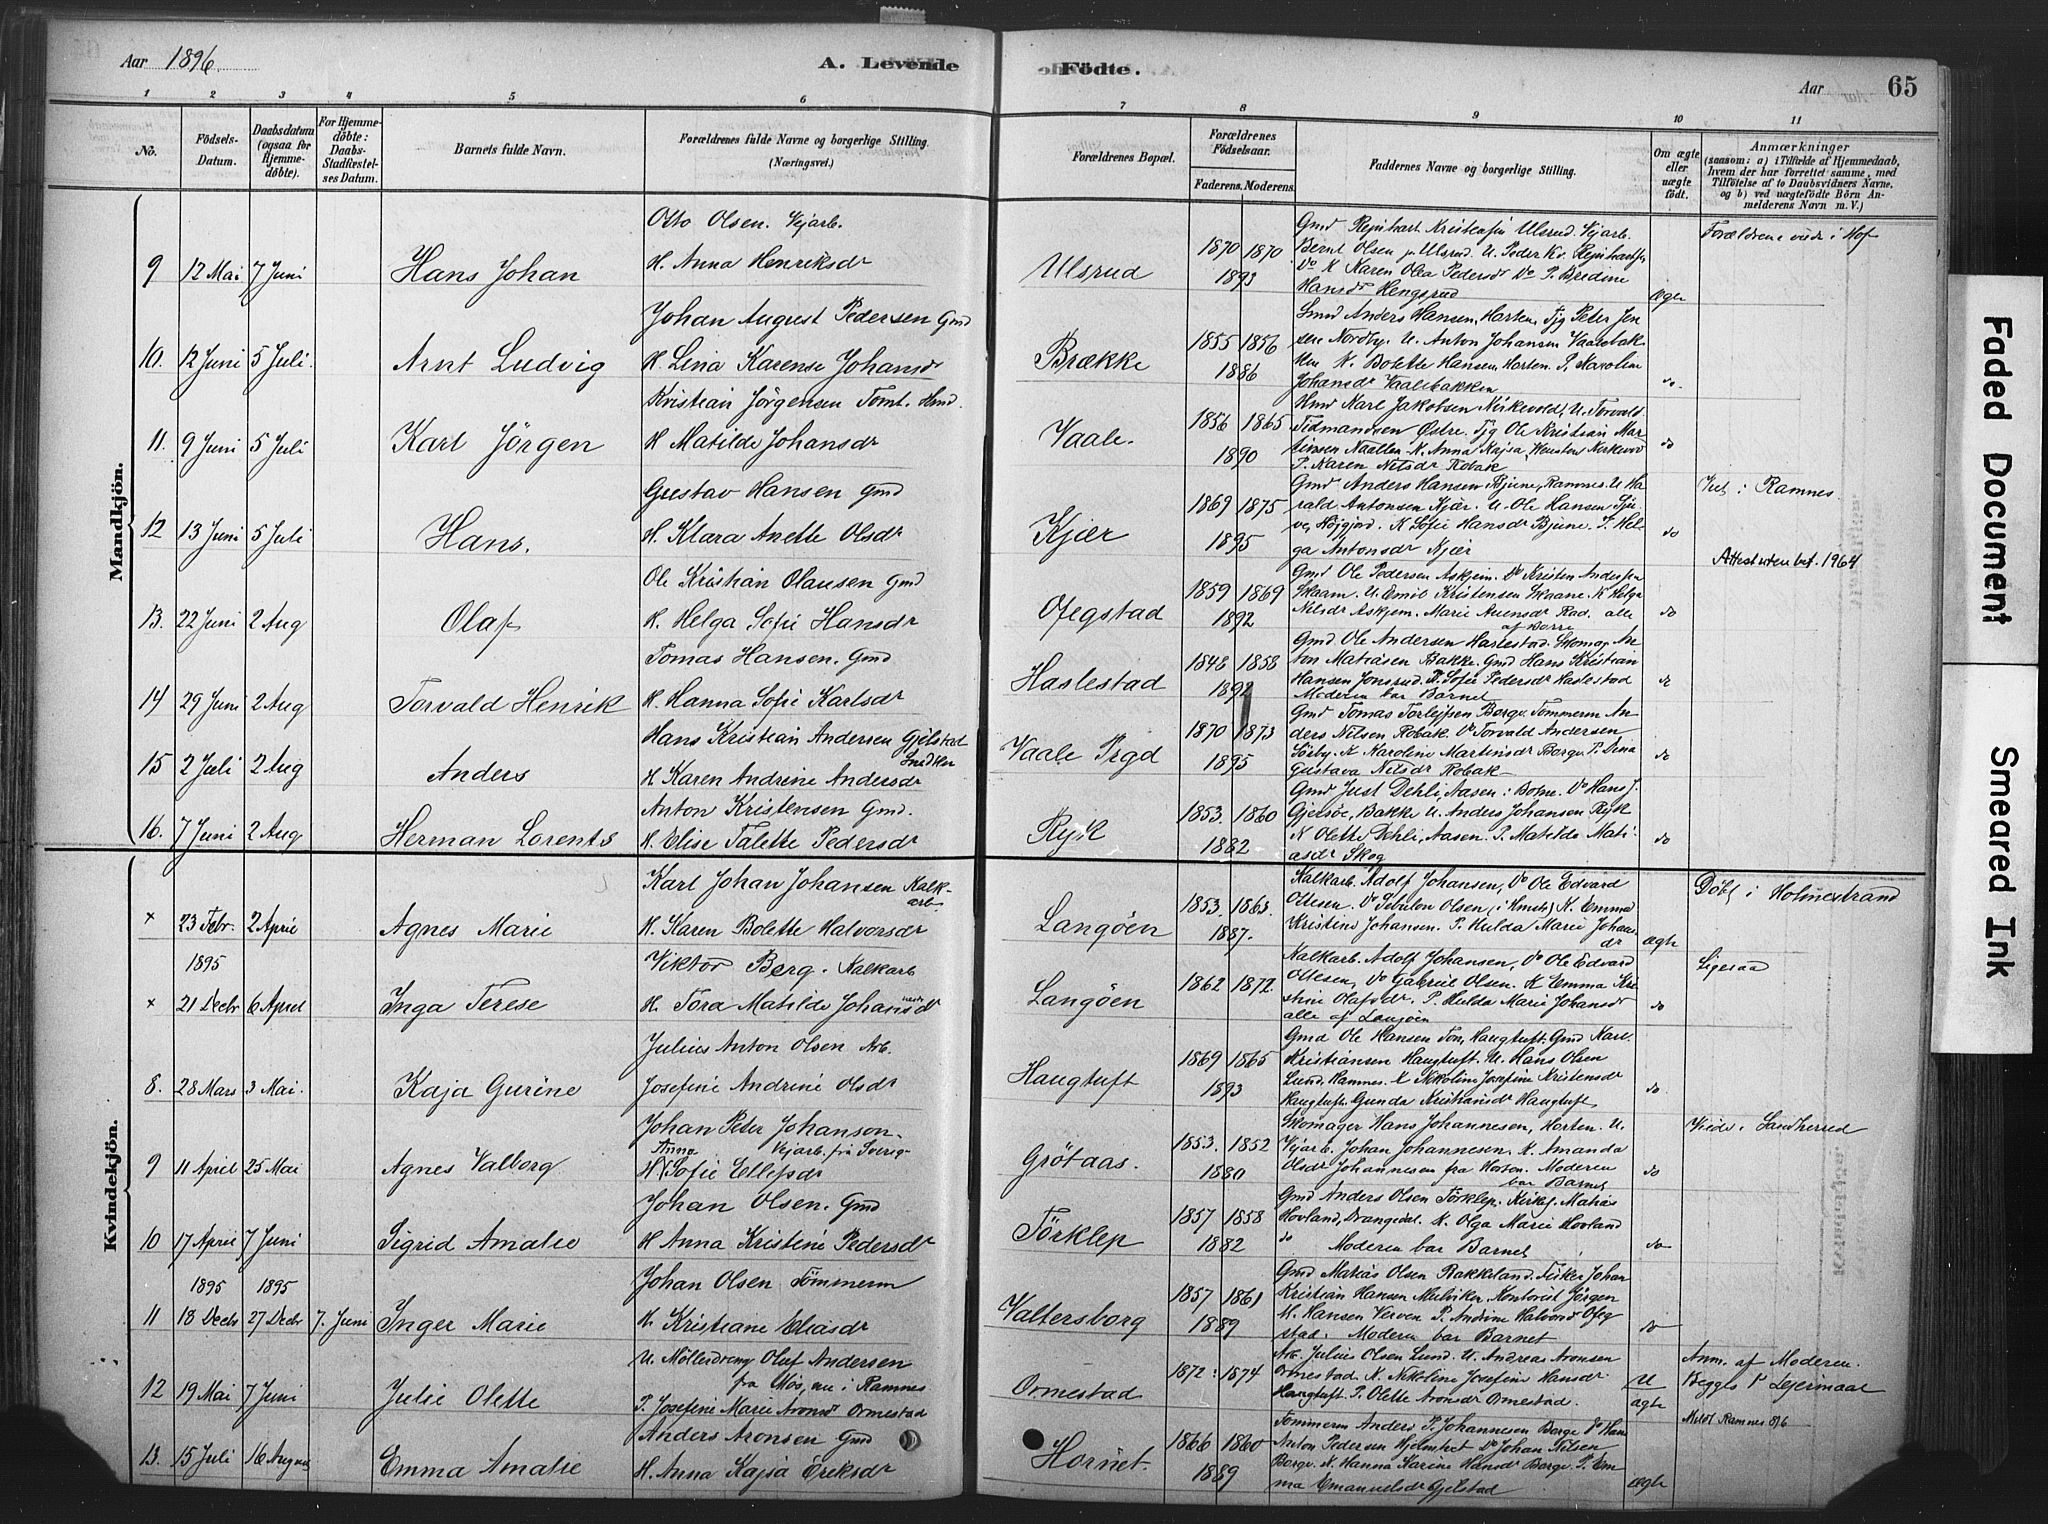 Aar 1896.
A. Levende
Födte.
Aar
65
1 2 3 4 5 6
7 8 9 10 11
No.
Födsels-
Datum.
Daabsdatum
(ogsaa for
Hjemme-
döbte).
For Hjemme-
döbte:
Daabs-
Stadfæstel-
ses Datum.
Barnets fulde Navn.
Forældrenes fulde Navne og borgerlige Stilling.
(Næringsvei.)
Forældrenes Bopæl.
Forældrenes
Födselsaar.
Faderens. Moderens.
Faddernes Navne og borgerlige Stilling.
Om ægte
eller
uægte
födt.
Anmærkninger
(saasom: a) i Tilfælde af Hjemmedaab,
hvem der har forrettet samme, med
Tilföielse af to Daabsvidners Navne,
og b) ved uægtefödte Börn An-
melderens Navn m. V.)
Mandkjön.
9 12 Mai 7 Juni Hans Johan
Otto Olsen. Vejarb.
H. Anna Henriksdr
Ulsrud
1870 1870
1893
Gmd Reinhart Kristofsen Ulsrud. Vejarb.
Bernt Olsen
Do K Karen Olea Pedersdr Do P. Bredine
Hansdr Hengsrud
Ægte
Forældrene viede i Hof
10. 12 Juni 5 Juli. Arnt Ludvig
Johan August Pedersen Gmd
H. Lina Karense Johansdr
Brække
1855 1856
1886
Smed Anders Hansen, Horten, Tjg Peter Jen
sen Nordby. U. Anton Johansen Vaalebak
ken K. Bolette Hansen, Horten. P. Karoline
Johansdr Vaalebakken
do.
11. 9 Juni 5 Juli Karl Jörgen
Kristian Jörgensen Tomt. Hmd.
H Matilde Johansdr
Vaale.
1856 1865
1890
Hmd Karl Jakobsen Kirkevold, U. Torvald
Tidmandsen Østre. Tjg Ole Kristian Mar
tinsen K. Anna Kajsa
P. Karen Nilsdr Robak
do
12 13 Juni 5 Juli Hans.
Gustav Hansen Gmd
H. Klara Anette Olsdr
Kjær
1869 1875
1895
Gmd Anders Hansen Bjune, Ramnes. U. Ha
rald Antonsen Kjær. U. Ole Hansen
Højgjord. K Sofie Hansdr Bjune. P. Hel
ga Antonsdr Kjær
do
Viet i Ramnes.
Attest uten bet. 1964
13. 22 Juni 2 Aug Olaf
Ole Kristian Olausen Gmd
H. Helga Sofie Hansdr
Ofegstad
1859 1869
1892
Gmd Ole Pedersen Askjem. Do Kristen Andersen
Skaane. U. Emil Kristensen Skaane. K Helga
Nilsdr Askjem. Marie Rad. alle
af Borre
do
14 29 Juni 2 Aug Torvald Henrik
Tomas Hansen. Gmd
H. Hanna Sofie Karlsdr
Haslestad
1848 1858
1892
Gmd Ole Andersen Haslestad. Skomag. An
ton Matiasen Bakke. Gmd Hans Kristian
Hansen Jonsrud. P. Sofie Pedersdr Haslestad
Moderen bar Barnet
do
15 2 Juli 2 Aug Anders
Hans Kristian Andersen Gjelstad
Snedker
H Karen Andrine Andersdr
Vaale Prgd
1870 1873
1895
Gmd Tomas Torlejfsen Borge. Tømmerm An
ders Nilsen Robak. Do Torvald Andersen
Sörby. K Karoline Martinsdr Borge P. Anna
Gustava Nilsdr Robak
do
16. 7 Juni 2 Aug Herman Lorents
Anton Kristensen Gmd.
H. Elise Talette Pedersdr
Ryk
1853. 1860
1882
Gmd Just Dehli, Aasen i Botne. Do Hans J.
Gjelsöe, Bakke U. Anders Johansen Ryk
K Olette Dehli, Aasen. P. Matilde Mati-
asdr Skog
do
Kvindekjön.
x 23 Febr. 2 April Agnes Marie
Karl Johan Johansen Kalk-
arb.
H. Karen Bolette Halvorsdr
Langöen
1853. 1863.
1887.
Kalkarb. Adolf Johansen, Do Ole Edvard
Olsen. Do Sebulon Olsen, (i Hmst) K. Emma
Kristine Johansen. P. Hulda Marie Johans-
dr
ægte
Döbt i Holmestrand
1895
x 21 Decbr 6 April Inga Terese
Viktor Berg. Kalkarb
H. Tora Matilde Johansdr
Langöen
1862 1872.
Kalkarb. Adolf Johansen, Do Ole Edvard
Olsen, Do Gabriel Olsen. K Emma Kri
stine Olafsdr. P. Hulda Marie Johansdr
alle af Langöen
do
Ligesaa
8. 28 Mars 3 Mai. Kaja Gurine
Julius Anton Olsen Arb.
Josefine Andrine Olsdr
Haugtuft
1869 1865
1893
Gmd Ole Hansen Haugtuft. Gmd Karl
Kristiansen Haugtuft. U. Hans Olsen
Lund, Ramnes. K Nikoline Josefine Kristensdr
Haugtuft. Gunda Kristiansdr Haugtuft
do
9 11 April 25 Mai Agnes Valborg
Johan Peter Johanson.
Vejarb. fra Sverig
H Anna Sofie Ellefsdr
Grötaas.
1853. 1852
1880
Skomager Hans Johannesen, Horten. U.
Vejarb. Johan Johannesen. K. Amanda
Olsdr Johannesen fra Horten. Moderen
bar Barnet
do
Viede i Sandherred
10 17 April 7 Juni Sigrid Amalie
Johan Olsen. Gmd
H Anna Kristine Pedersdr
Törklep
1857 1858
1882
Gmd Anders Olsen Törklep. Matias
Hovland, Drangedal. K. Olga Marie Hovland
do Moderen bar Barnet
do
1895 1895
11 18 Decbr 27 Decbr 7. Juni Inger Marie
Johan Olsen Tömmerm
H. Kristiane Eliasdr
Valtersborg
1857 1861
1889
Gmd Matias Olsen Bakkeland. Fisker Johan
Kristian Hansen Mulviken. Kontorist Jörgen
M. Hansen Verven P. Andrine Halvorsdr Ofeg
stad. Moderen bar Barnet
do
12 19 Mai 7 Juni Julie Olette
U. Möllerdreng Oluf Andersen
fra Mos, nu i Ramnes
P. Josefine Marie Aronsdr Ormestad
Ormestad
1872: 1874
Arb. Julius Olsen Lund. U. Andreas Aronsen
Ormestad. K. Nikoline Josefine Hansdr
Haugtuft. P. Olette Aronsdr Ormestad.
U
ægte
Anm. af Moderen.
Begges 1' Lejermaal
Meldt Ramnes 8/6
13. 15 Juli 16 August Emma Amalie
Anders Aronsen Gmd
H. Anna Kajsa Eriksdr
Hornet.
1866 1860
1889
Tömmerm Anders P. Johannesen Borge Do Hans
Anton Pedersen Do Johan Nilsen
Borge. K. Hanna Karine Hansdr Borge. P. Em
ma Emanuelsdr Gjelstad
ægte
Faded Document
Smeared Ink